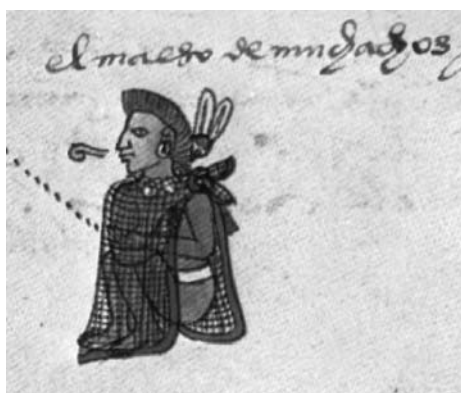 el maeso de muchachos